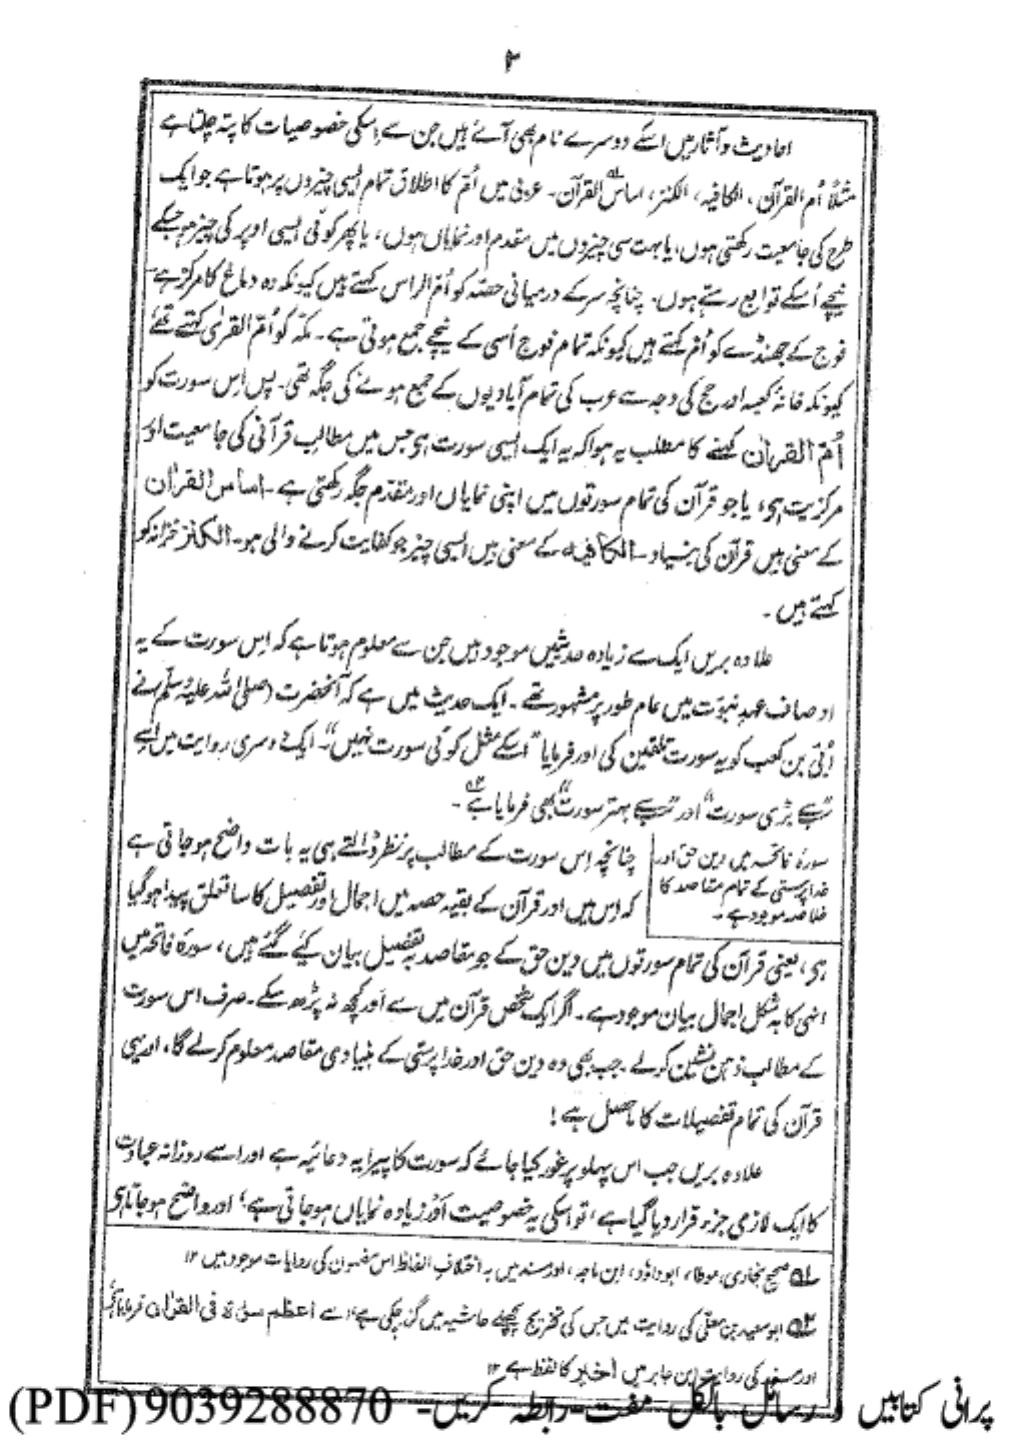 ۳
احادیث و آثار میں اسکے دوسرے نام بھی آئے ہیں جن سے اِسکی خصوصیات کا پتہ چلتا ہے
مثلاً اُم القرآن، الکافیہ، الکنز، اساس القرآن۔ عربی میں اُم کا اطلاق تمام ایسی چیزوں پر ہوتا ہے جو ایک
طرح کی جامعیت رکھتی ہوں، یا بہت سی چیزوں میں مقدم اور نمایاں ہوں، یا پھر کوئی ایسی اوپر کی چیز ہو جسکے
نیچے اُسکے توابع رہتے ہوں۔ چنانچہ سر کے درمیانی حصّہ کو اُمّ الراس کہتے ہیں کیونکہ وہ دماغ کا مرکز ہے۔
فوج کے جھنڈے کو اُم کہتے ہیں کیونکہ تمام فوج اُسی کے نیچے جمع ہوتی ہے۔ مکّہ کو اُمّ القریٰ کہتے تھے
کیونکہ خانۂ کعبہ اور حج کی وجہ سے عرب کی تمام آبادیوں کے جمع ہونے کی جگہ تھی۔ پس اِس سورت کو
اُمّ القران کہنے کا مطلب یہ ہوا کہ یہ ایک ایسی سورت ہی جس میں مطالبِ قرآنی کی جامعیت اور
مرکزیت ہی، یا جو قرآن کی تمام سورتوں میں اپنی نمایاں اور مقدّم جگہ رکھتی ہے۔ اساس القران
کے معنی ہیں قرآن کی بنیاد۔ الکافیہ کے معنی ہیں ایسی چیز جو کفایت کرنے والی ہو۔ الکنز خزانہ کو
کہتے ہیں۔
علاوہ بریں ایک سے زیادہ حدیثیں موجود ہیں جن سے معلوم ہوتا ہے کہ اِس سورت کے یہ
اوصاف عہدِ نبوّت میں عام طور پر مشہور تھے۔ ایک حدیث میں ہے کہ آنحضرت (صلی اللہ علیہ وسلم) نے
اُبَی بن کعب کو یہ سورت تلقین کی اور فرمایا "اسکے مثل کوئی سورت نہیں"۔ ایک دوسری روایت میں اسے
"سب سے بڑی سورت" اور "سب سے بہتر سورت" بھی فرمایا ہے ۲ـہ۔
سورۂ فاتحہ میں دین حق اور
خدا پرستی کے تمام مقاصد کا
خلاصہ موجود ہے۔
چنانچہ اِس سورت کے مطالب پر نظر ڈالتے ہی یہ بات واضح ہو جاتی ہے
کہ اِس میں اور قرآن کے بقیہ حصہ میں اجمال اور تفصیل کا سا تعلق پیدا ہوگیا
ہی، یعنی قرآن کی تمام سورتوں میں دین حق کے جو مقاصد بہ تفصیل بیان کیے گئے ہیں، سورۂ فاتحہ میں
انہی کا بہ شکل اجمال بیان موجود ہے۔ اگر ایک شخص قرآن میں سے اَور کچھ نہ پڑھ سکے۔ صرف اس سورت
کے مطالب ذہن نشین کرلے۔ جب بھی وہ دین حق اور خدا پرستی کے بنیادی مقاصد معلوم کرلے گا، اور یہی
قرآن کی تمام تفصیلات کا ماحصل ہے!
علاوہ بریں جب اس پہلو پر غور کیا جائے کہ سورت کا پیرایہ دعائیہ ہے اور اسے روزانہ عبادت
کا ایک لازمی جزء قرار دیا گیا ہے، تو اسکی یہ خصوصیت اَور زیادہ نمایاں ہو جاتی ہے، اور واضح ہو جاتا ہی
لہ صحیح بخاری، موطا، ابوداؤد، ابن ماجہ، اور مسند میں بہ اختلاف الفاظ اس مضمون کی روایات موجود ہیں ۱۲
۲ـہ ابو سعید بن معلّی کی روایت میں جس کی تخریج پچھلے حاشیہ میں گزر چکی ہے، اسے اعظم سورۃ فی القرآن فرمایا ہے
اور مسند کی روایت ابن جابر میں اخیر کا لفظ ہے ۱۲
پرانی کتابیں و رسائل بالکل مفت۔ رابطہ کریں۔ 9039288870 (PDF)